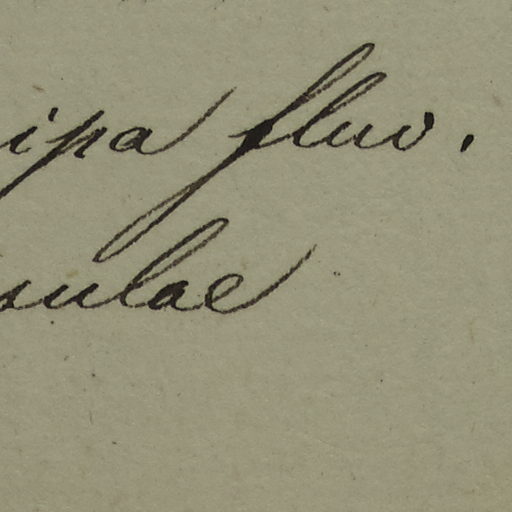 ipa fluv.
sulae